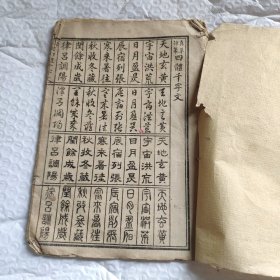 四體千字文
天地玄黃
宇宙洪荒
日月盈昃
辰宿列張
寒來暑往
秋收冬藏
閏餘成歲
律呂調陽
天地玄黃
宇宙洪荒
日月盈昃
辰宿列張
寒來暑往
秋收冬藏
閏餘成歲
律呂調陽
天地玄黃
宇宙洪荒
日月盈昃
辰宿列張
寒來暑往
秋收冬藏
閏餘成歲
律呂調陽
天地玄黃
宇宙洪荒
日月盈昃
辰宿列張
寒來暑往
秋收冬藏
閏餘成歲
律呂調陽